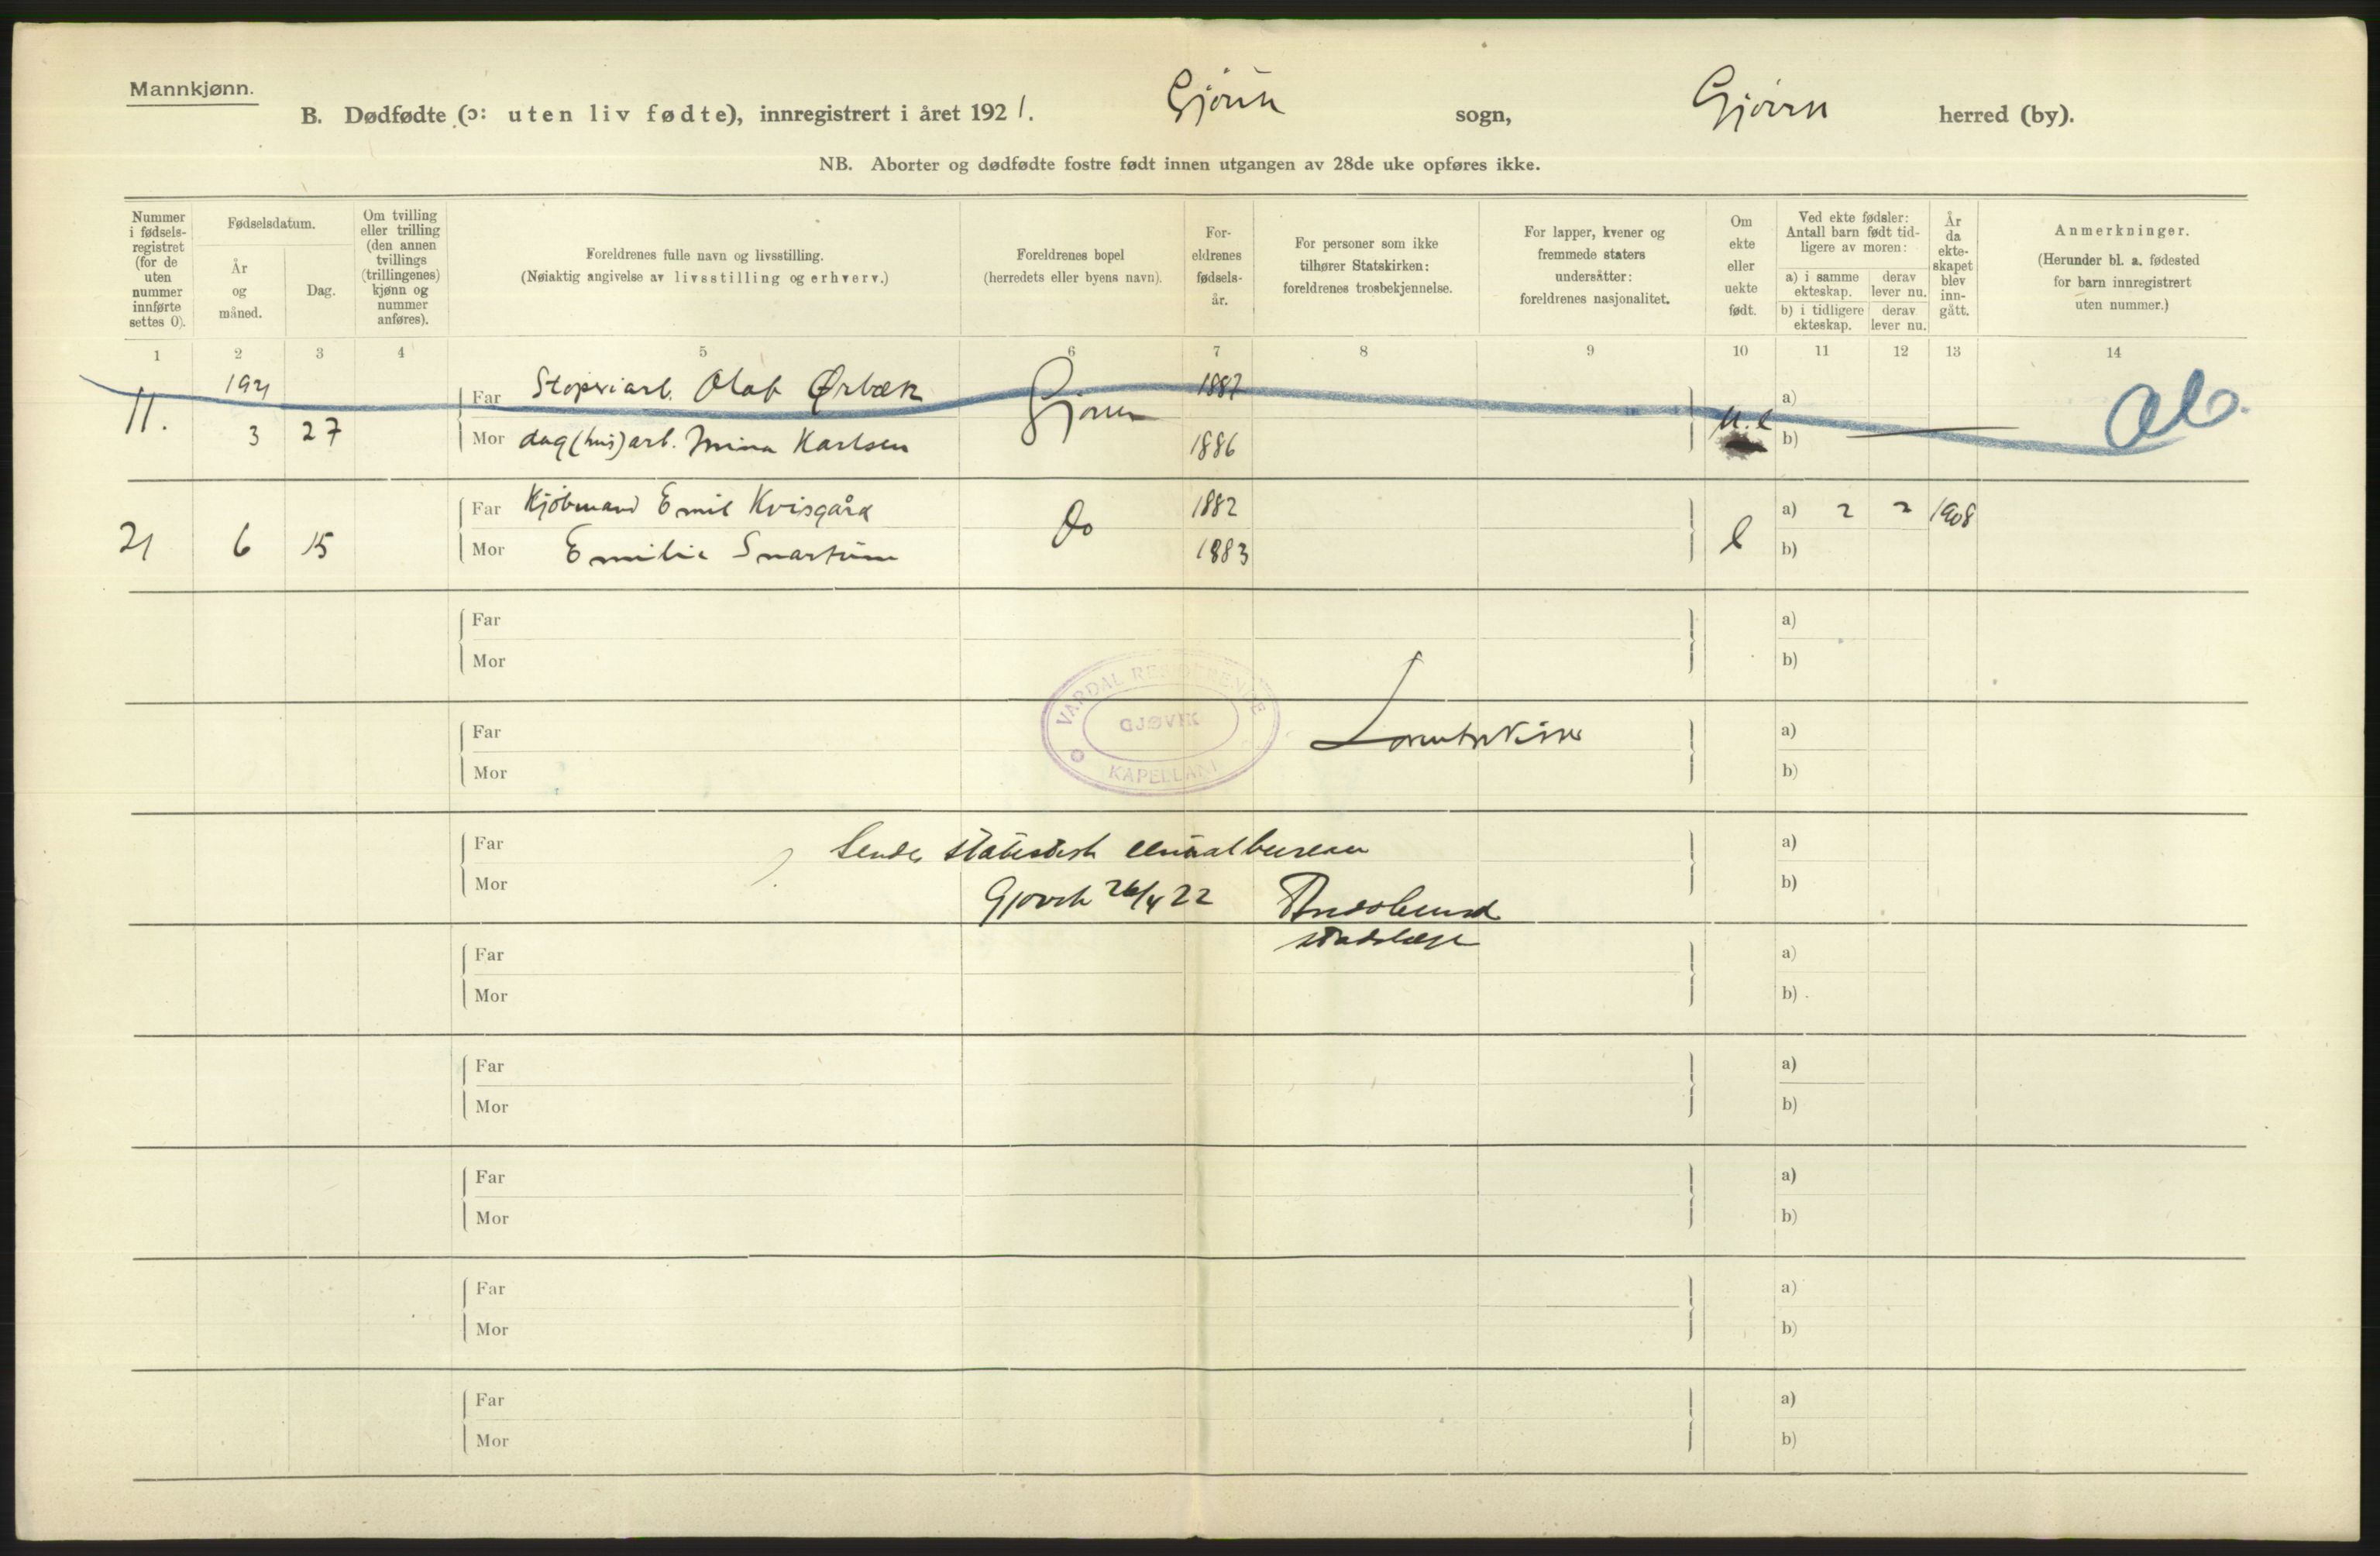 Mannkjønn.
B. Dødfødte (ɔ: uten liv fødte), innregistrert i året 1921. Gjøvik sogn, Gjøvik herred (by).
NB. Aborter og dødfødte fostre født innen utgangen av 28de uke opføres ikke.
Nummer i fødsels-registret (for de uten nummer innførte settes 0).
Fødselsdatum.
År og måned.
Dag.
Om tvilling eller trilling (den annen tvillings (trillingenes) kjønn og nummer anføres).
Foreldrenes fulle navn og livsstilling.
(Nøiaktig angivelse av livsstilling og erhverv.)
Foreldrenes bopel
(herredets eller byens navn).
For-eldrenes fødsels-år.
For personer som ikke tilhører Statskirken: foreldrenes trosbekjennelse.
For lapper, kvener og fremmede staters undersåtter: foreldrenes nasjonalitet.
Om ekte eller uekte født.
Ved ekte fødsler: Antall barn født tid-ligere av moren:
a) i samme ekteskap. derav lever nu.
b) i tidligere ekteskap. derav lever nu.
År da ekte-skapet blev inn-gått.
Anmerkninger.
(Herunder bl. a. fødested for barn innregistrert uten nummer.)
1 2 3 4 5 6 7 8 9 10 11 12 13 14
1921 Far Olaf Ørbæk 1887 a)
11. 3 27 Mor dag(hus)arb. Mina Karlsen Gjøvik 1886 u.e b)
Far Kjøbmand Emil Kvisgård 1882 a) 2 2 1908
21 6 15 Mor Emilie Snartum do 1883 e b)
Far a)
Mor b)
VARDAL RESIDERENDE
GJØVIK
KAPELLANI
Far a)
Mor b)
Far Sendes statistisk centralbureau a)
Mor Gjøvik 26/4 22 b)
stadslæge
Far a)
Mor b)
Far a)
Mor b)
Far a)
Mor b)
Far a)
Mor b)
Far a)
Mor b)